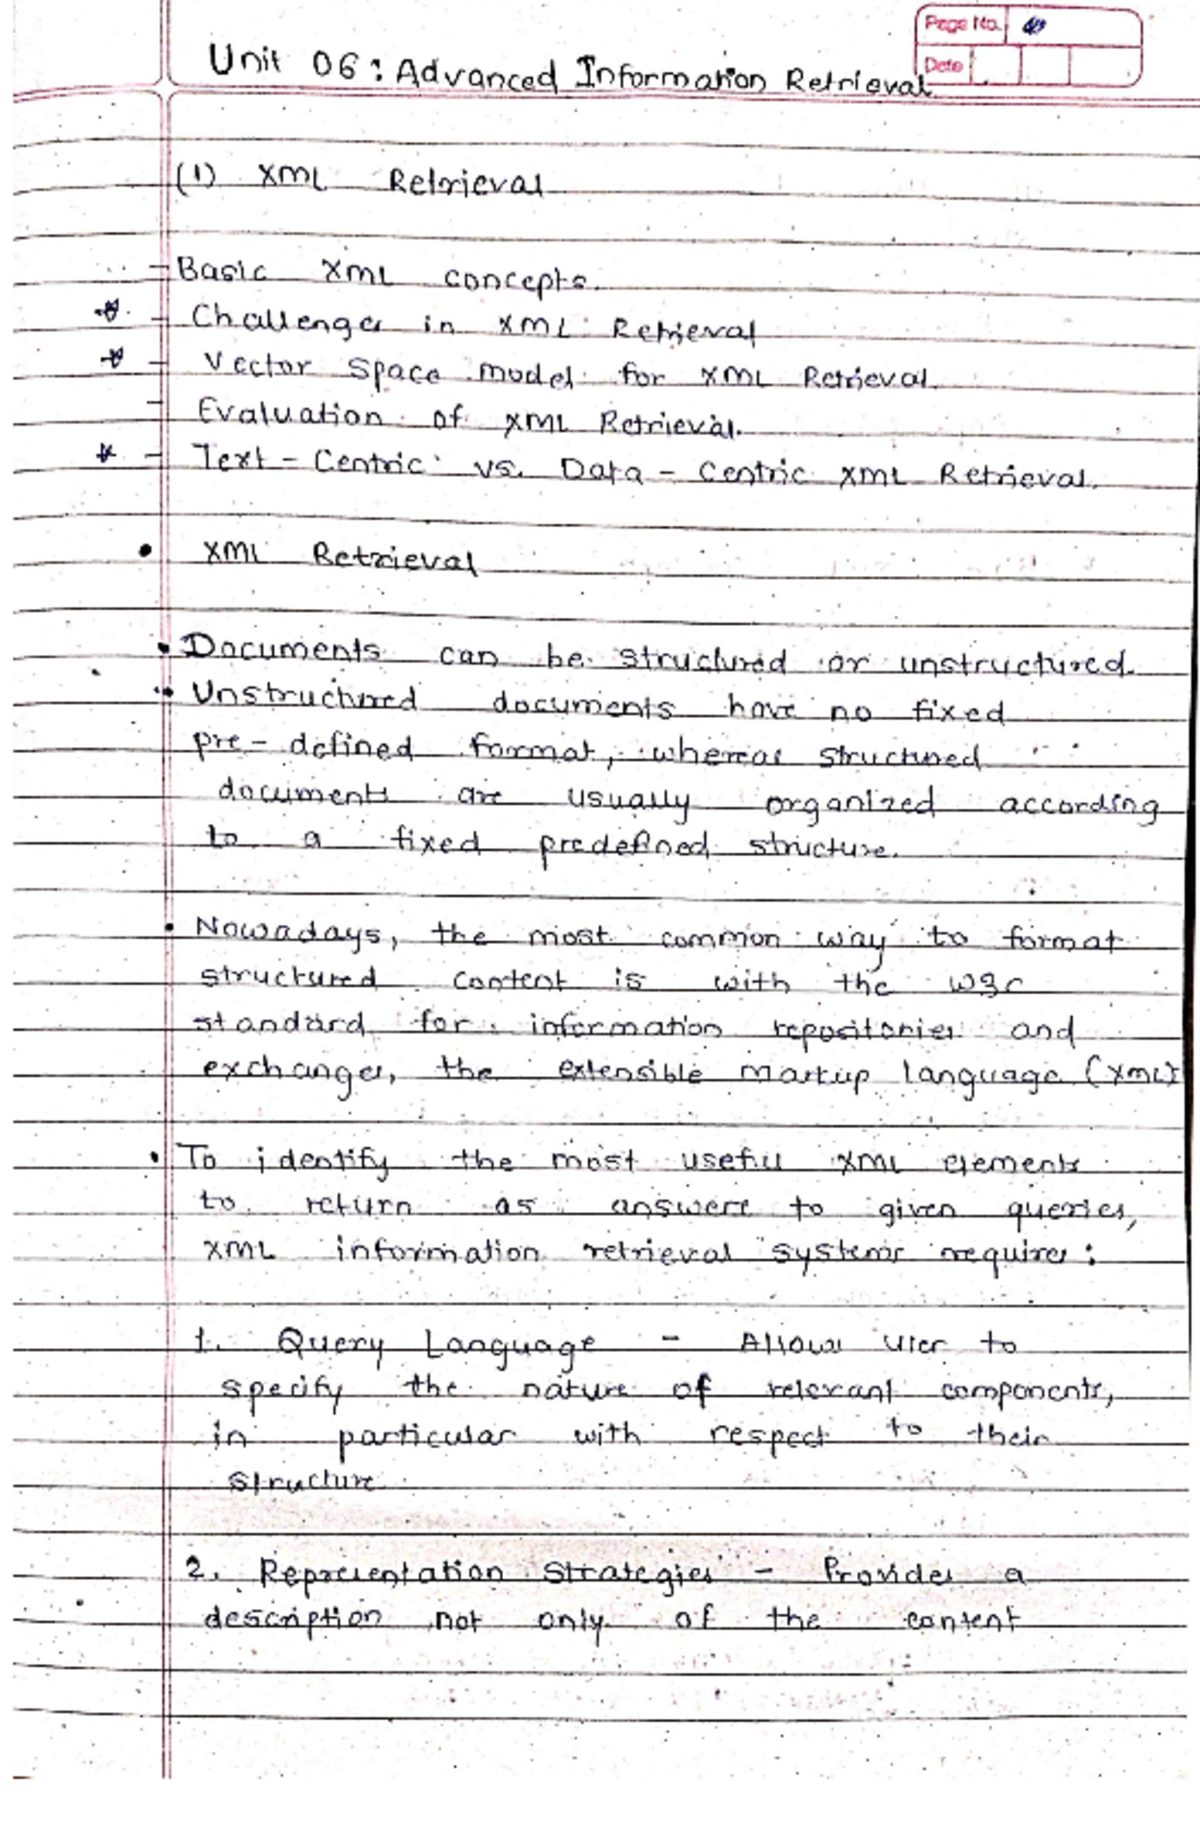 Page No.
Date
Unit 06: Advanced Information Retrieval
(1) XML Retrieval
- Basic XML concepts.
* - Challenges in XML Retrieval
* - Vector space model for XML Retrieval.
- Evaluation of XML Retrieval.
* - Text - Centric vs. Data - Centric XML Retrieval.
• XML Retrieval
• Documents can be structured or unstructured.
• Unstructured documents have no fixed
pre-defined format, whereas structured
documents are usually organized according
to a fixed predefined structure.
• Nowadays, the most common way to format
structured content is with the W3C
standard for information repositories and
exchanges, the extensible markup language (XML)
• To identify the most useful XML elements
to return as answers to given queries,
XML information retrieval systems requires:
1. Query Language - Allows user to
specify the nature of relevant components,
in particular with respect to their
structure.
2. Representation Strategies - Provides a
description not only of the content